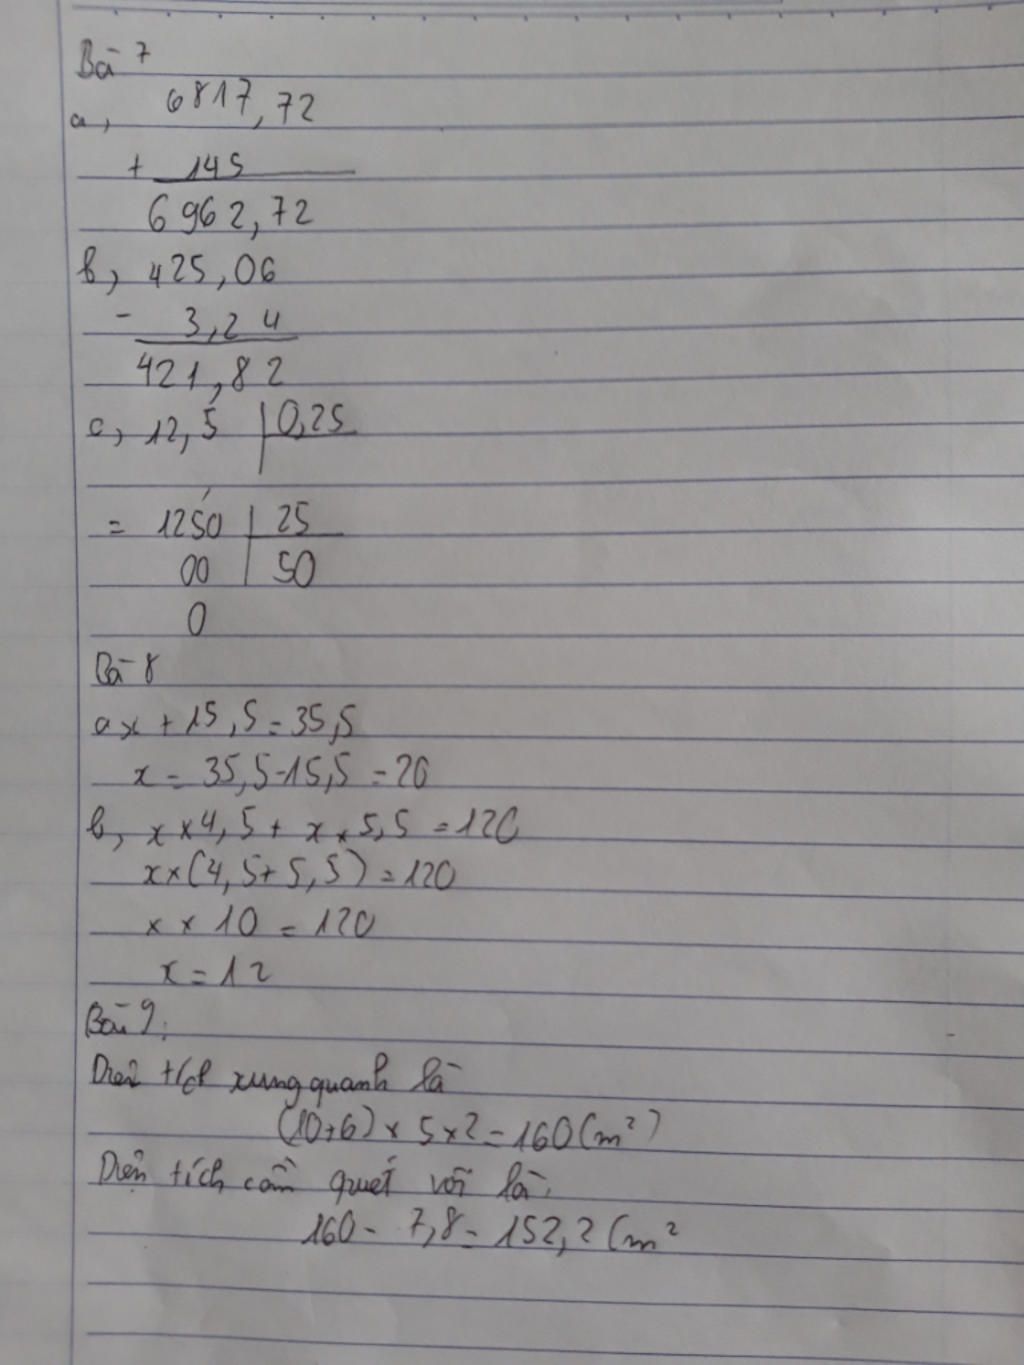 Bài 7
a, 6817,72
+ 145
6962,72
b, 425,06
- 3,24
421,82
c, 12,5 | 0,25
= 1250 | 25
00 | 50
0
Bài 8
a x + 15,5 = 35,5
x = 35,5 - 15,5 = 20
b, x × 4,5 + x × 5,5 = 120
x × (4,5 + 5,5) = 120
x × 10 = 120
x = 12
Bài 9:
Diện tích xung quanh là
(10+6) × 5 × 2 = 160 (m²)
Diện tích cần quét vôi là:
160 - 7,8 = 152,2 (m²